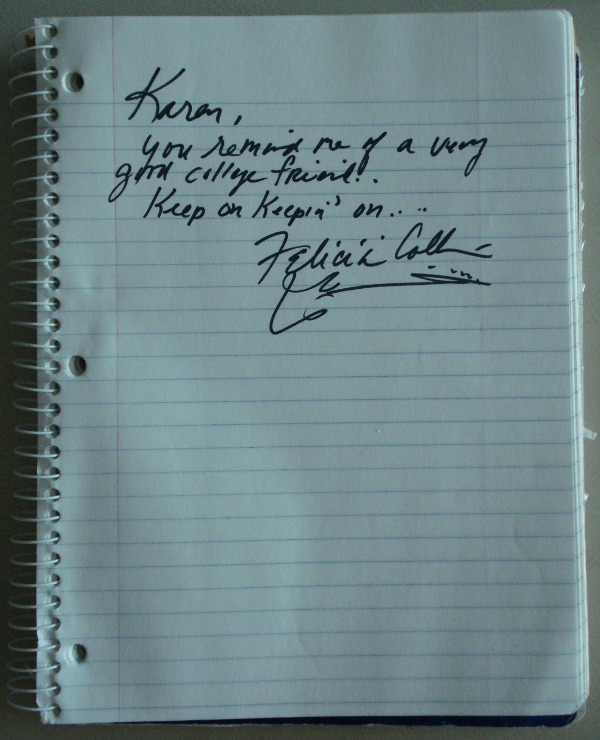 Karen,
you remind me of a very
good college friend!.
Keep on Keepin' on....
Felicia Coll